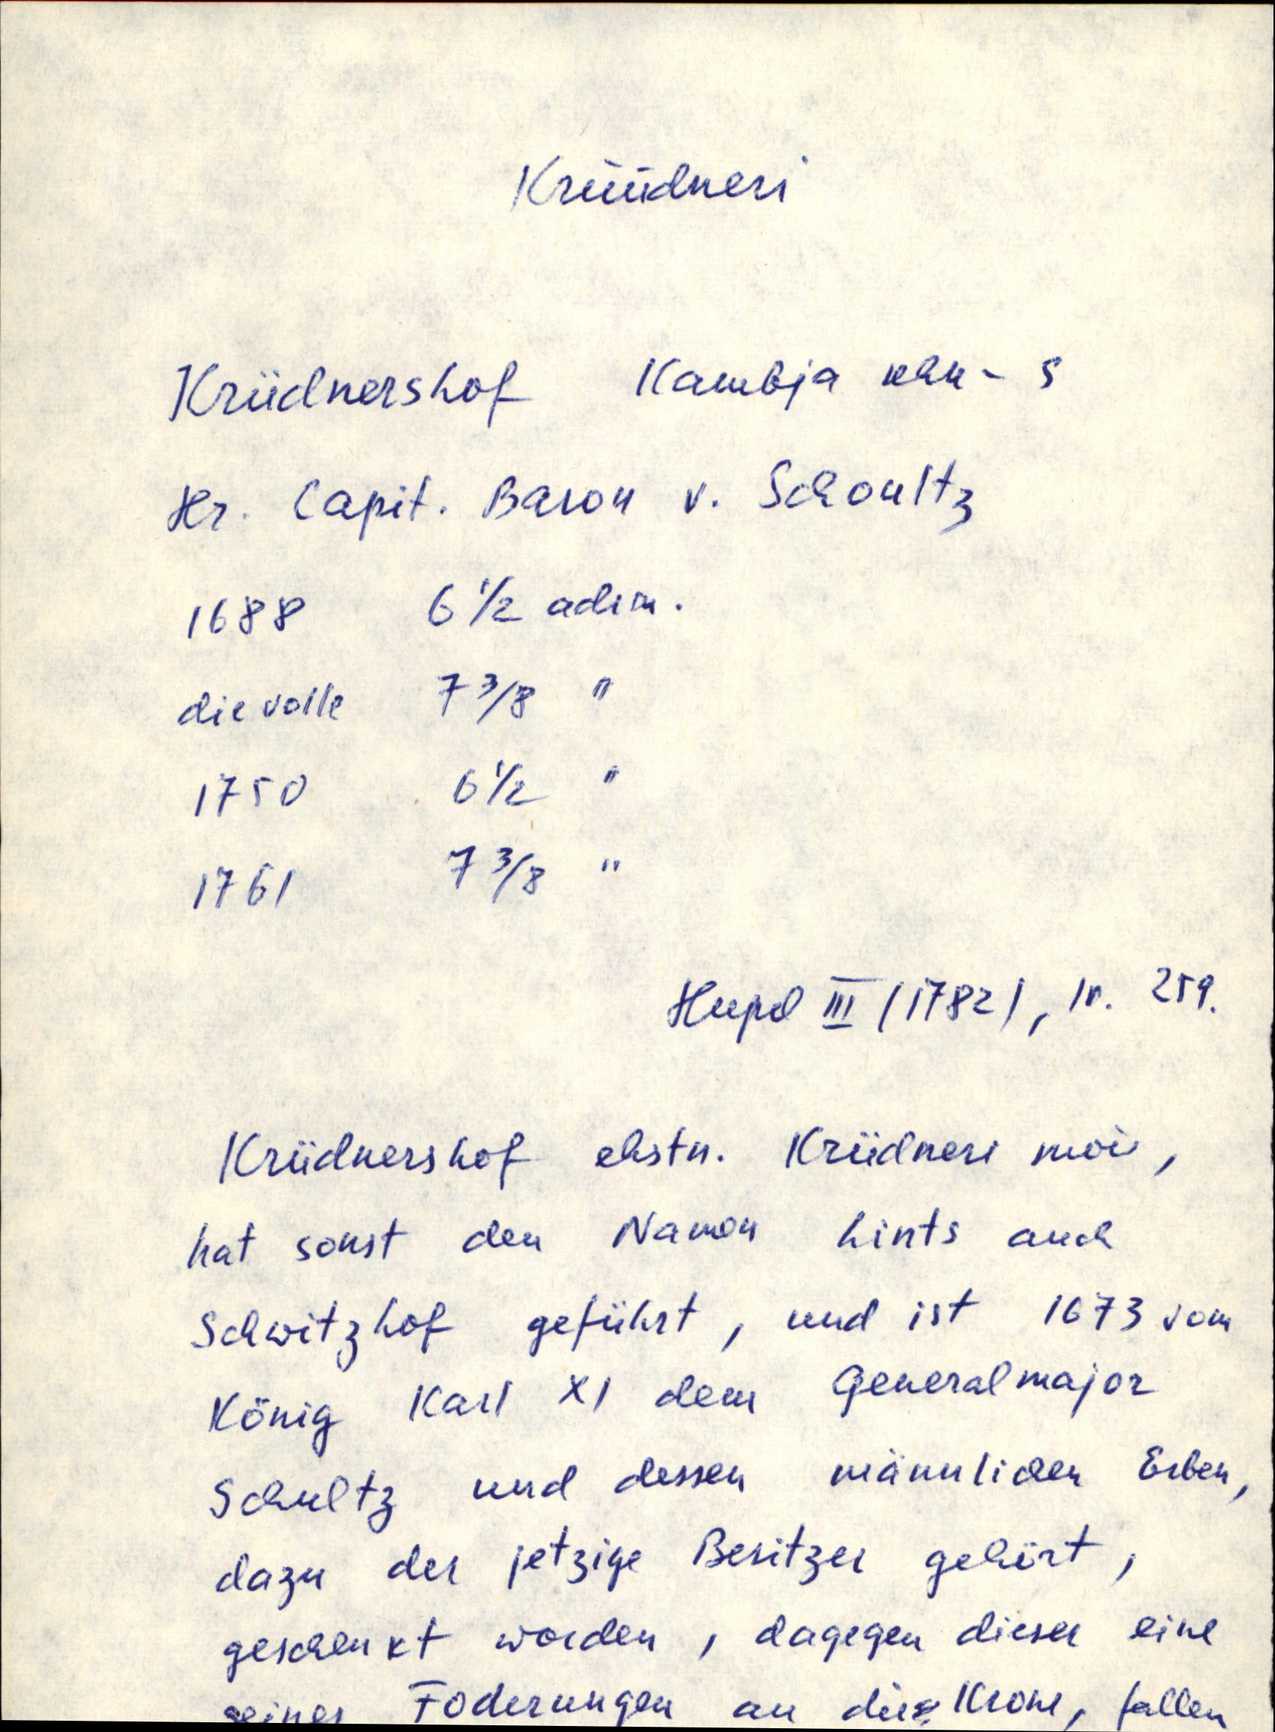 Krüüdneri
Krüdnershof Kambja khk-s
Hr. Capit. Baron v. Schoultz
1688 6 1/2 adrm.
die volle 7 3/8 "
1750 6 1/2 "
1761 7 3/8 "
Hupel III (1782), lk. 259.
Krüdnershof ehstn. Krüdneri mois,
hat sonst den Namen Lints auch
Schwitzhof geführt, und ist 1673 vom
König Karl XI dem Generalmajor
Schultz und dessen männlichen Erben,
dazu der jetzige Besitzer gehört,
geschenkt worden, dagegen dieser eine
seiner Foderungen an die Krone, fallen